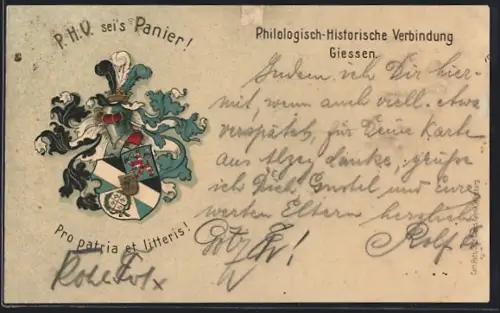 P. H. V. sei's Panier!
Philologisch-Historische Verbindung
Giessen.
Indem ich Dir hier-
mit, wenn auch viell. etwas
verspätet, für Deine Karte
aus Alzey danke, grüße
ich Dich, Gustel und Eure
werten Eltern herzlich
Rolf
Pro patria et litteris!